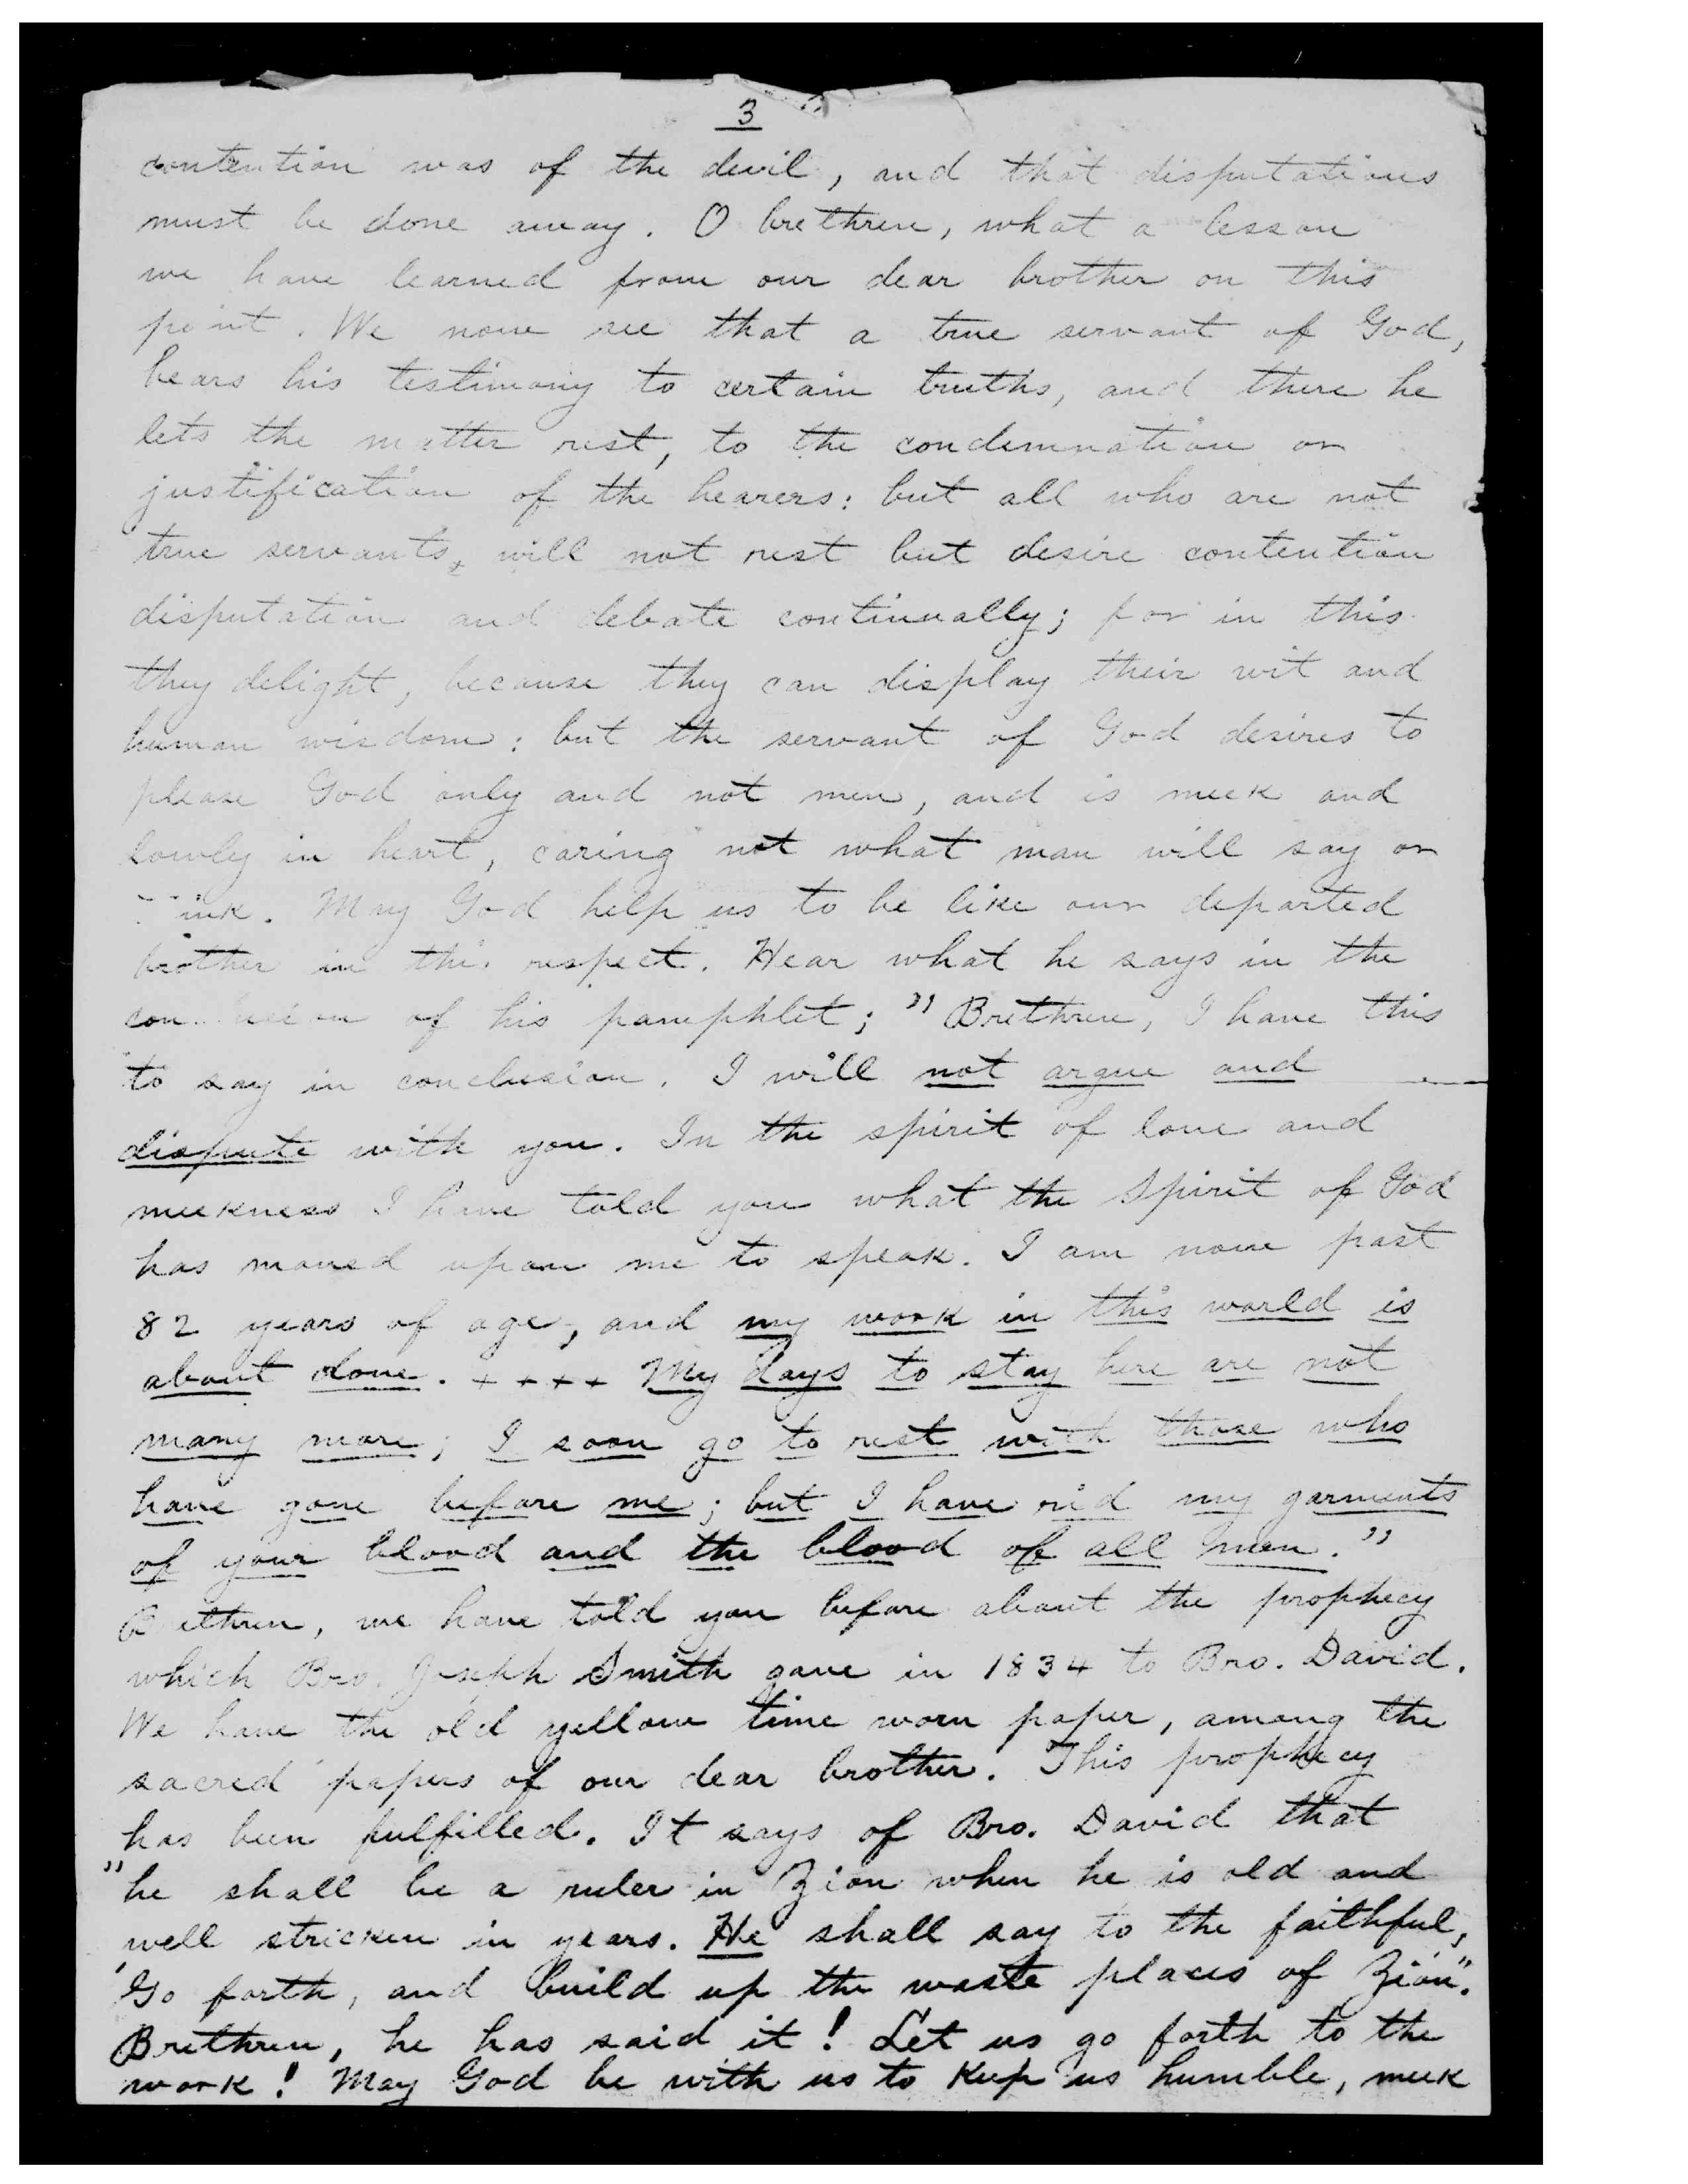 3
contention was of the devil, and that disputations
must be done away. O brethren, what a lesson
we have learned from our dear brother on this
point. We now see that a true servant of God,
bears his testimony to certain truths, and there he
lets the matter rest, to the condemnation or
justification of the hearers: but all who are not
true servants, will not rest but desire contention
disputation and debate continually; for in this
they delight, because they can display their wit and
human wisdom: but the servant of God desires to
please God only and not men, and is meek and
lowly in heart, caring not what man will say or
ink. May God help us to be like our departed
brother in this respect. Hear what he says in the
of his pamphlet; "Brethren, I have this
to say in conclusion. I will not argue and
dispute with you. In the spirit of love and
meekness I have told you what the Spirit of God
has moved upon me to speak. I am now past
82 years of age, and my work in this world is
about done. + + + + My days to stay here are not
many more; I soon go to rest with those who
have gone before me; but I have rid my garments
of your blood and the blood of all men."
B ethren, we have told you before about the prophecy
which Bro. Joseph Smith gave in 1834 to Bro. David.
We have the old yellow time worn paper, among the
sacred papers of our dear brother. This prophecy
has been fulfilled. It says of Bro. David that
"he shall be a ruler in Zion when he is old and
well stricken in years. He shall say to the faithful,
'Go forth, and build up the waste places of Zion'".
Brethren, he has said it! Let us go forth to the
work! May God be with us to keep us humble, meek